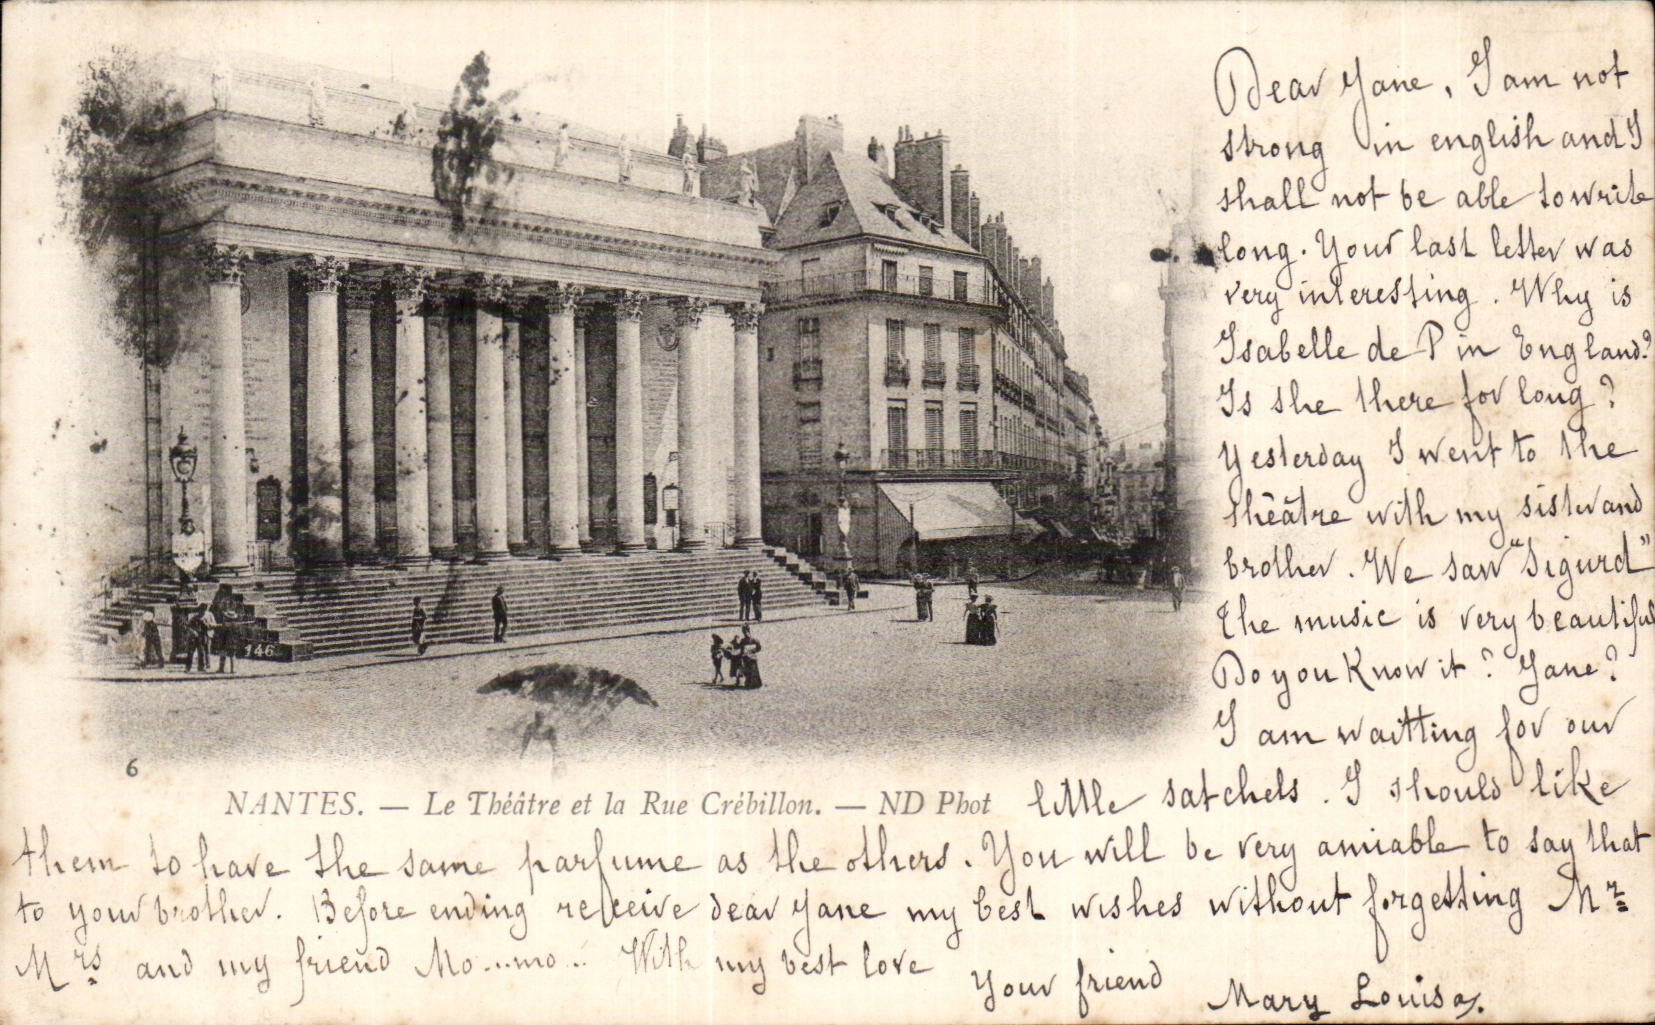 Dear Jane, I am not
strong in english and I
shall not be able to write
long. Your last letter was
very interesting. Why is
Isabelle de P in England?
Is she there for long?
Yesterday I went to the
théâtre with my sister and
brother. We saw "Sigurd"
the music is very beautiful
Do you know it? Jane?
I am waitting for our
little satchels. I should like
them to have the same parfume as the others. You will be very amiable to say that
to your brother. Before ending receive dear Jane my best wishes without forgetting Mr
Mrs and my friend Mo...mo... With my best love
Your friend
Mary Louisa.
146
6
NANTES. — Le Théâtre et la Rue Crébillon. — ND Phot